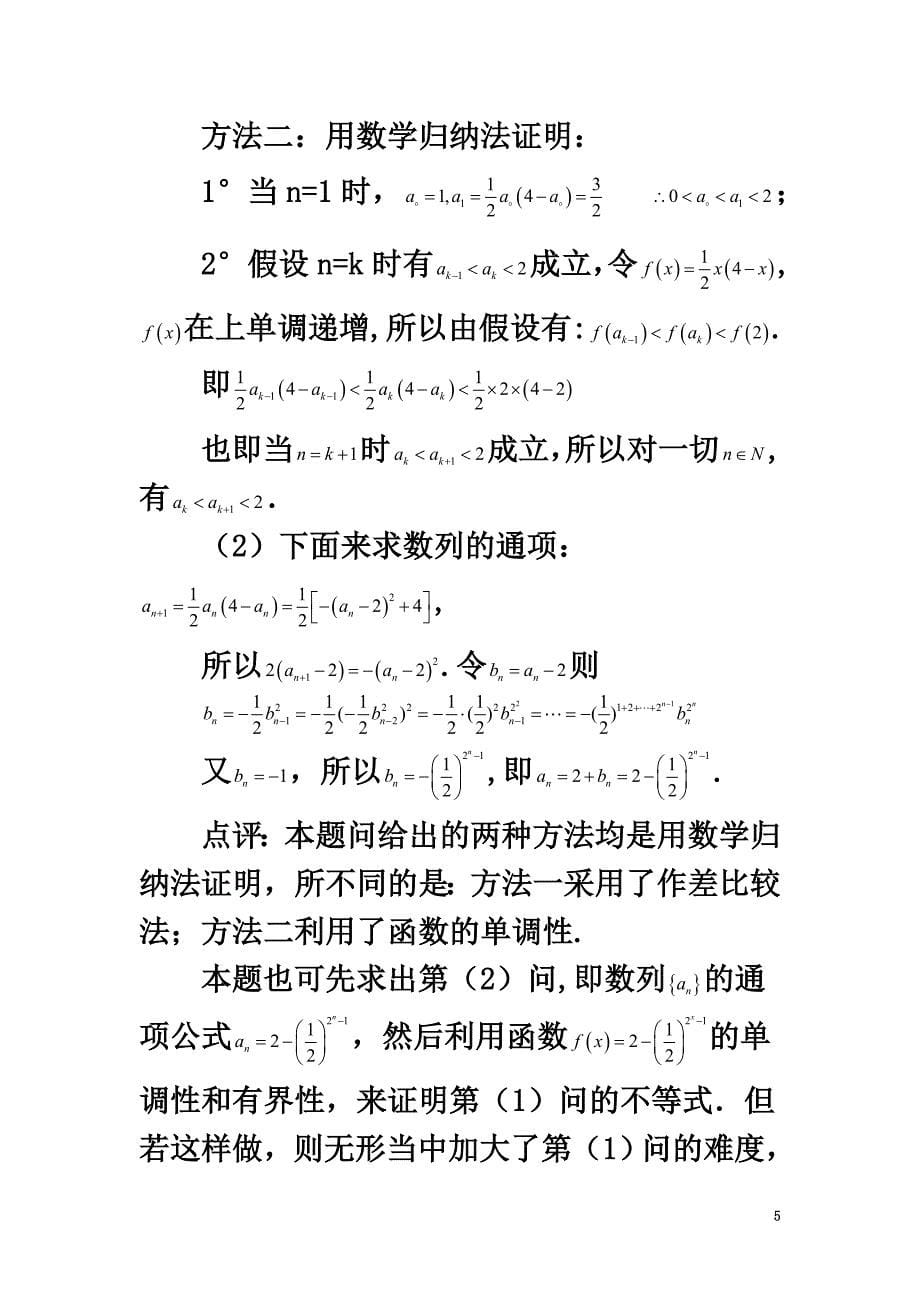 方法二：用数学归纳法证明：
1°当n=1时，a₀=1,a₁=\frac{1}{2}a₀(4-a₀)=\frac{3}{2} ∴0<a₀<a₁<2；
2°假设n=k时有a_{k-1}<a_k<2成立，令f(x)=\frac{1}{2}x(4-x)，
f(x)在上单调递增,所以由假设有:f(a_{k-1})<f(a_k)<f(2).
即\frac{1}{2}a_{k-1}(4-a_{k-1})<\frac{1}{2}a_k(4-a_k)<\frac{1}{2}×2×(4-2)
也即当n=k+1时a_k<a_{k+1}<2成立，所以对一切n∈N，
有a_k<a_{k+1}<2.
（2）下面来求数列的通项：
a_{n+1}=\frac{1}{2}a_n(4-a_n)=\frac{1}{2}[-(a_n-2)^2+4]，
所以2(a_{n+1}-2)=-(a_n-2)^2.令b_n=a_n-2则
b_n=-\frac{1}{2}b_{n-1}^2=-\frac{1}{2}(-\frac{1}{2}b_{n-2}^2)^2=-\frac{1}{2}·(\frac{1}{2})^2b_{n-1}^{2^2}=⋯=-(\frac{1}{2})^{1+2+⋯+2^{n-1}}b_n^{2^n}
又b_n=-1，所以b_n=-(\frac{1}{2})^{2^n-1},即a_n=2+b_n=2-(\frac{1}{2})^{2^n-1}.
点评：本题问给出的两种方法均是用数学归
纳法证明，所不同的是：方法一采用了作差比较
法；方法二利用了函数的单调性.
本题也可先求出第（2）问,即数列{a_n}的通
项公式a_n=2-(\frac{1}{2})^{2^n-1}，然后利用函数f(x)=2-(\frac{1}{2})^{2^x-1}的单
调性和有界性，来证明第（1）问的不等式．但
若这样做，则无形当中加大了第（1）问的难度，
5